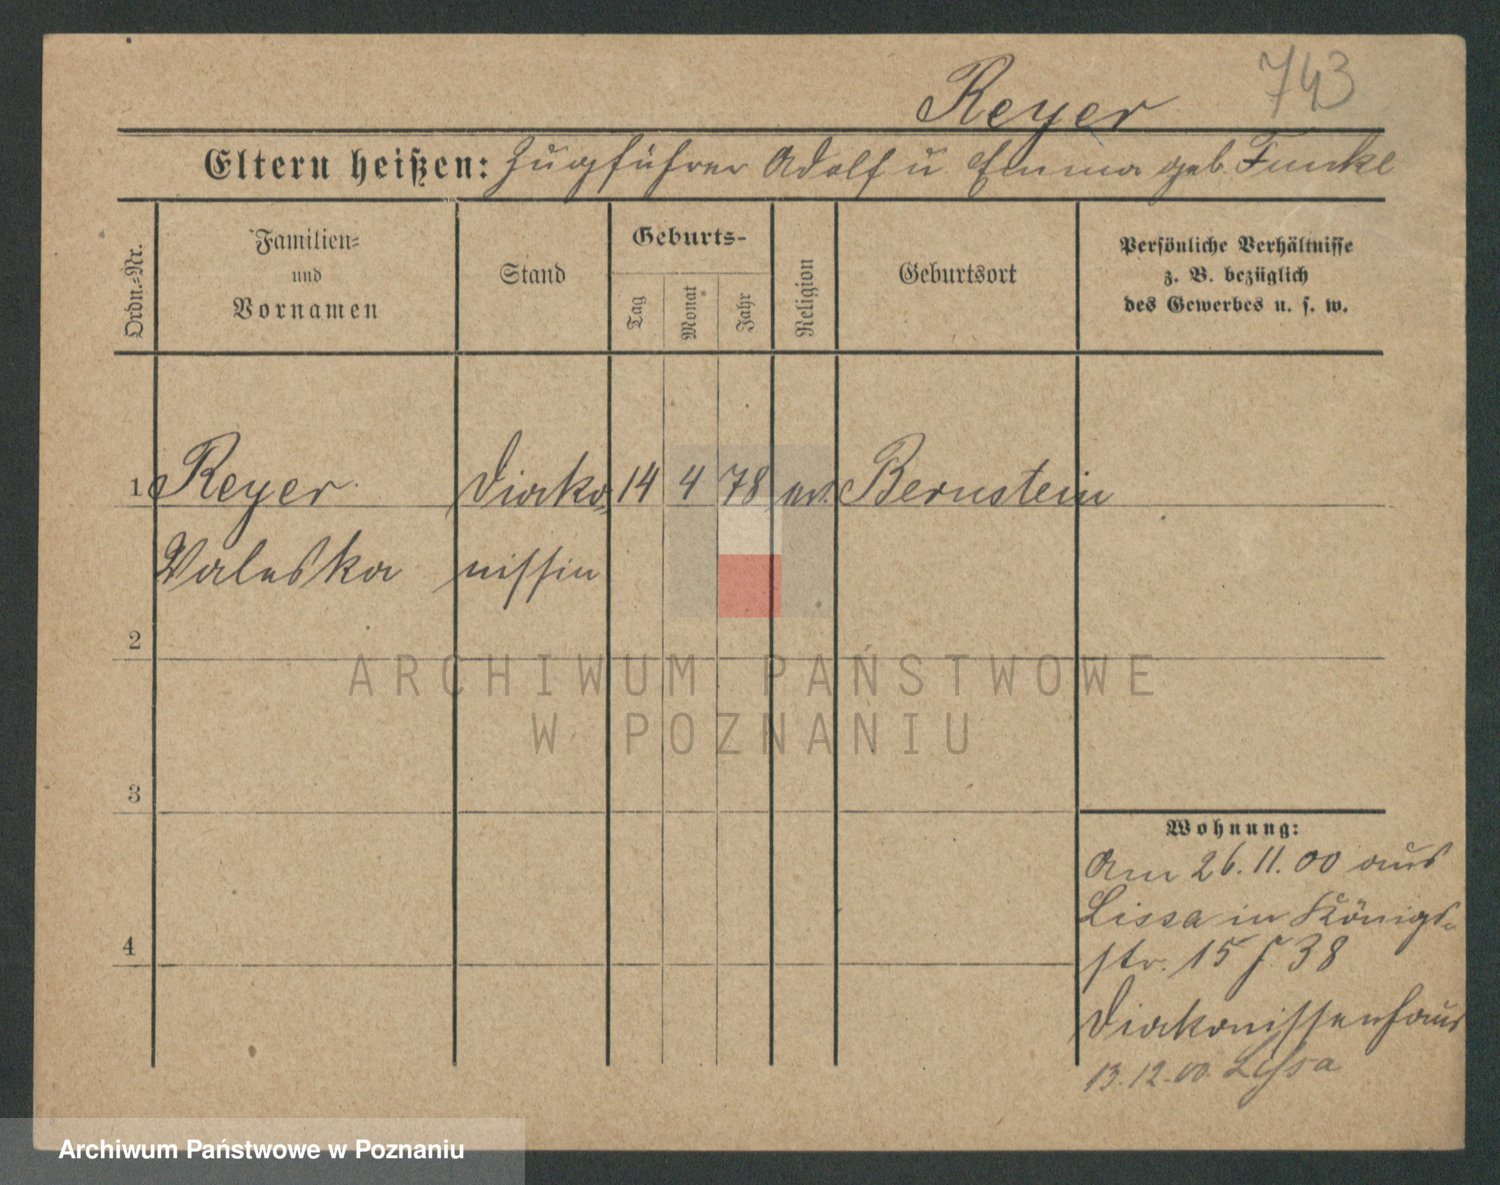 Reyer 743
Eltern heißen: Zugführer Adolf u. Emma geb. Funke
Ordn.=Nr.
Familien=
und
Vornamen
Stand
Geburts-
Tag
Monat
Jahr
Religion
Geburtsort
Persönliche Verhältnisse
z. B. bezüglich
des Gewerbes u. s. w.
1 Reyer Diako= 14 4 78 ev. Bernstein
Valeska nissin
2
ARCHIWUM PAŃSTWOWE
W POZNANIU
3
Wohnung:
Am 26.11.00 aus
Lissa in Königs=
str. 15 J. 38
4
Diakonissenhaus
13.12.00. Lissa
Archiwum Państwowe w Poznaniu